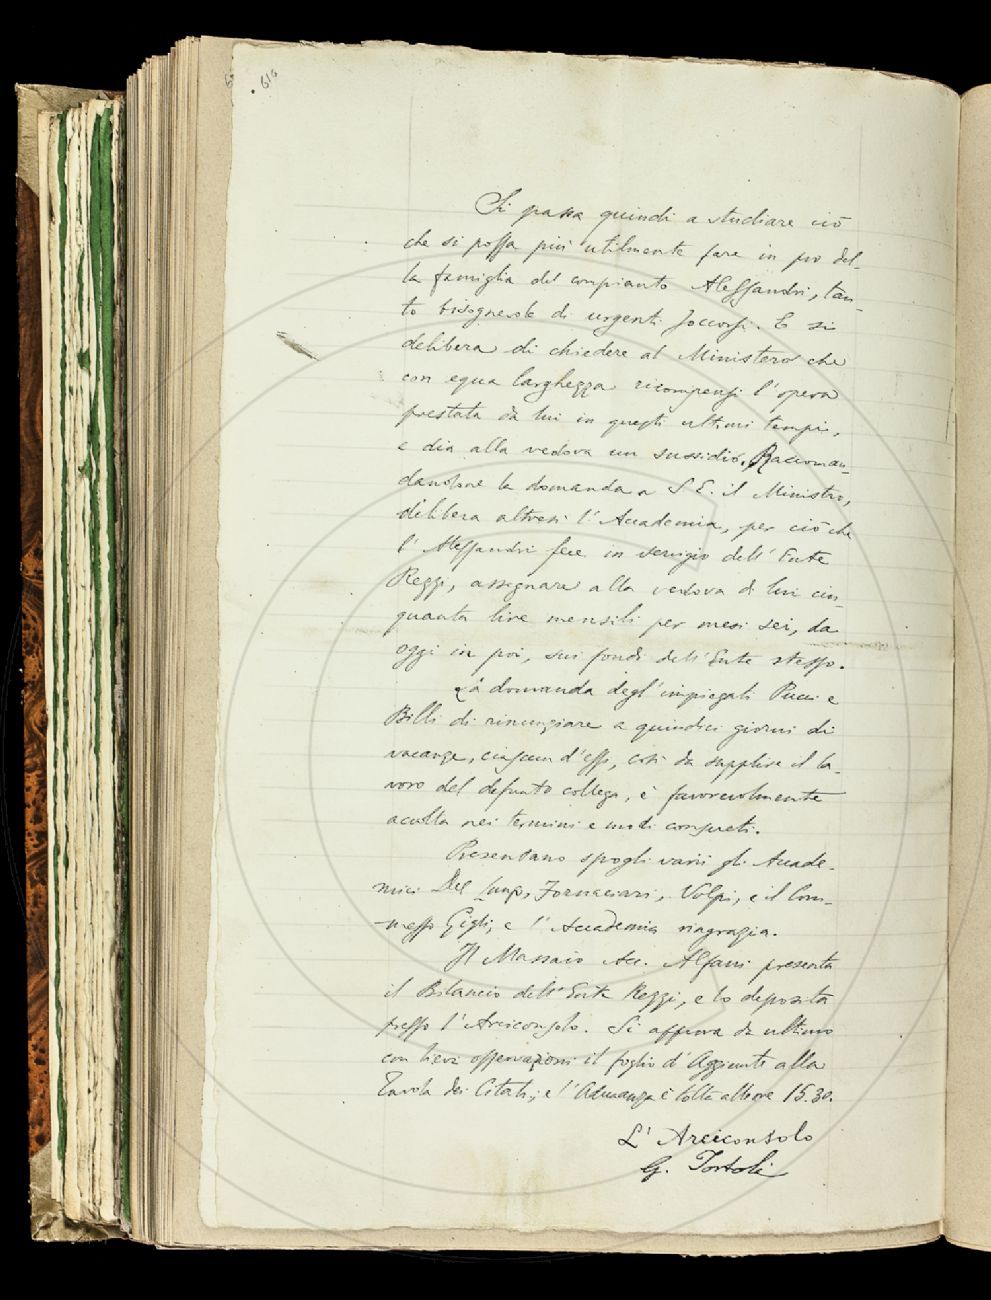 610
Si passa quindi a studiare ciò
che si possa più utilmente fare in pro del-
la famiglia del compianto Alessandri, tan-
to bisognevole di urgenti soccorsi. E si
delibera di chiedere al Ministero che
con equa larghezza ricompensi l'opera
prestata da lui in questi ultimi tempi,
e dia alla vedova un sussidio. Raccoman-
dandone la domanda a S. E. il Ministro,
delibera altresì l'Accademia, per ciò che
l'Alessandri fece in servigio dell'Ente
Rezzi, assegnare alla vedova di lui cin-
quanta lire mensili per mesi sei, da
oggi in poi, sui fondi dell'Ente stesso.
La domanda degl'impiegati Pucci e
Billi di rinunziare a quindici giorni di
vacanze, ciascun d'essi, così da supplire il la-
voro del defunto collega, è favorevolmente
accolta nei termini e modi consueti.
Presentano spogli varii gli Accade-
mici Del Lungo, Fornaciari, Volpi, e il Com-
messo Gigli; e l'Accademia ringrazia.
Il Massaio Acc. Alfani presenta
il Bilancio dell'Ente Rezzi, e lo deposita
presso l'Arciconsolo. Si approva da ultimo
con lievi osservazioni il foglio d'Aggiunte alla
Tavola dei Citati; e l'Adunanza è tolta alle ore 15.30.
L'Arciconsolo
G. Tortoli